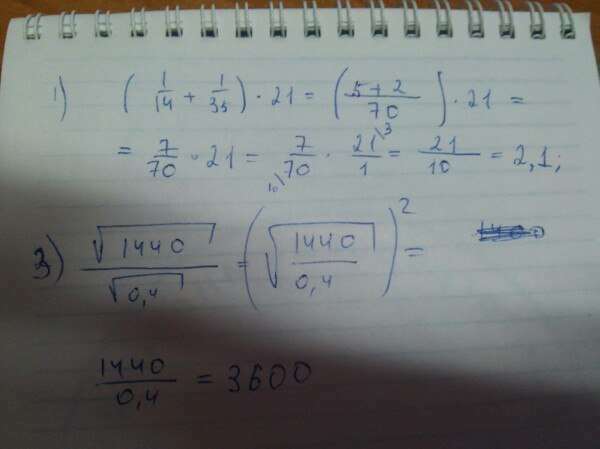 1) (1/14 + 1/35) · 21 = (5+2/70) · 21 =
= 7/70 · 21 = 7/70 \10 · 21/1 \3 = 21/10 = 2,1;
3) √1440/√0,4 = (√1440/0,4)² =
1440/0,4 = 3600